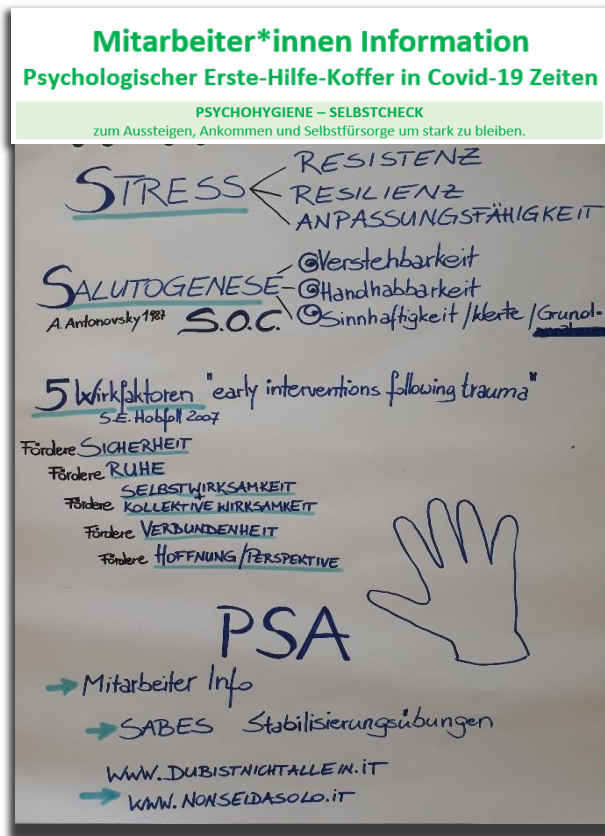 Mitarbeiter*innen Information
Psychologischer Erste-Hilfe-Koffer in Covid-19 Zeiten
PSYCHOHYGIENE – SELBSTCHECK
zum Aussteigen, Ankommen und Selbstfürsorge um stark zu bleiben.
STRESS
RESISTENZ
RESILIENZ
ANPASSUNGSFÄHIGKEIT
SALUTOGENESE
A. Antonovsky 1987
S.O.C.
Verstehbarkeit
Handhabbarkeit
Sinnhaftigkeit/Werte/Grund-
5 Wirkfaktoren "early interventions following trauma"
S.E. Hobfoll 2007
Fördere SICHERHEIT
Fördere RUHE
Fördere SELBSTWIRKSAMKEIT
+ KOLLEKTIVE WIRKSAMKEIT
Fördere VERBUNDENHEIT
Fördere HOFFNUNG/PERSPEKTIVE
PSA
Mitarbeiter Info
SABES Stabilisierungsübungen
WWW.DUBISTNICHTALLEIN.IT
WWW.NONSEIDASOLO.IT